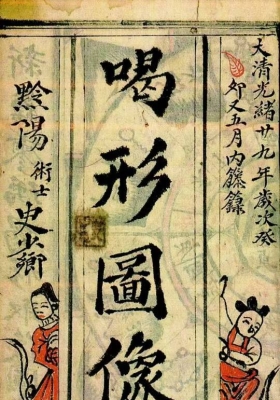 大清光緒廿九年歲次癸
卯又五月内
喝形圖像
黔陽 術士 史少卿